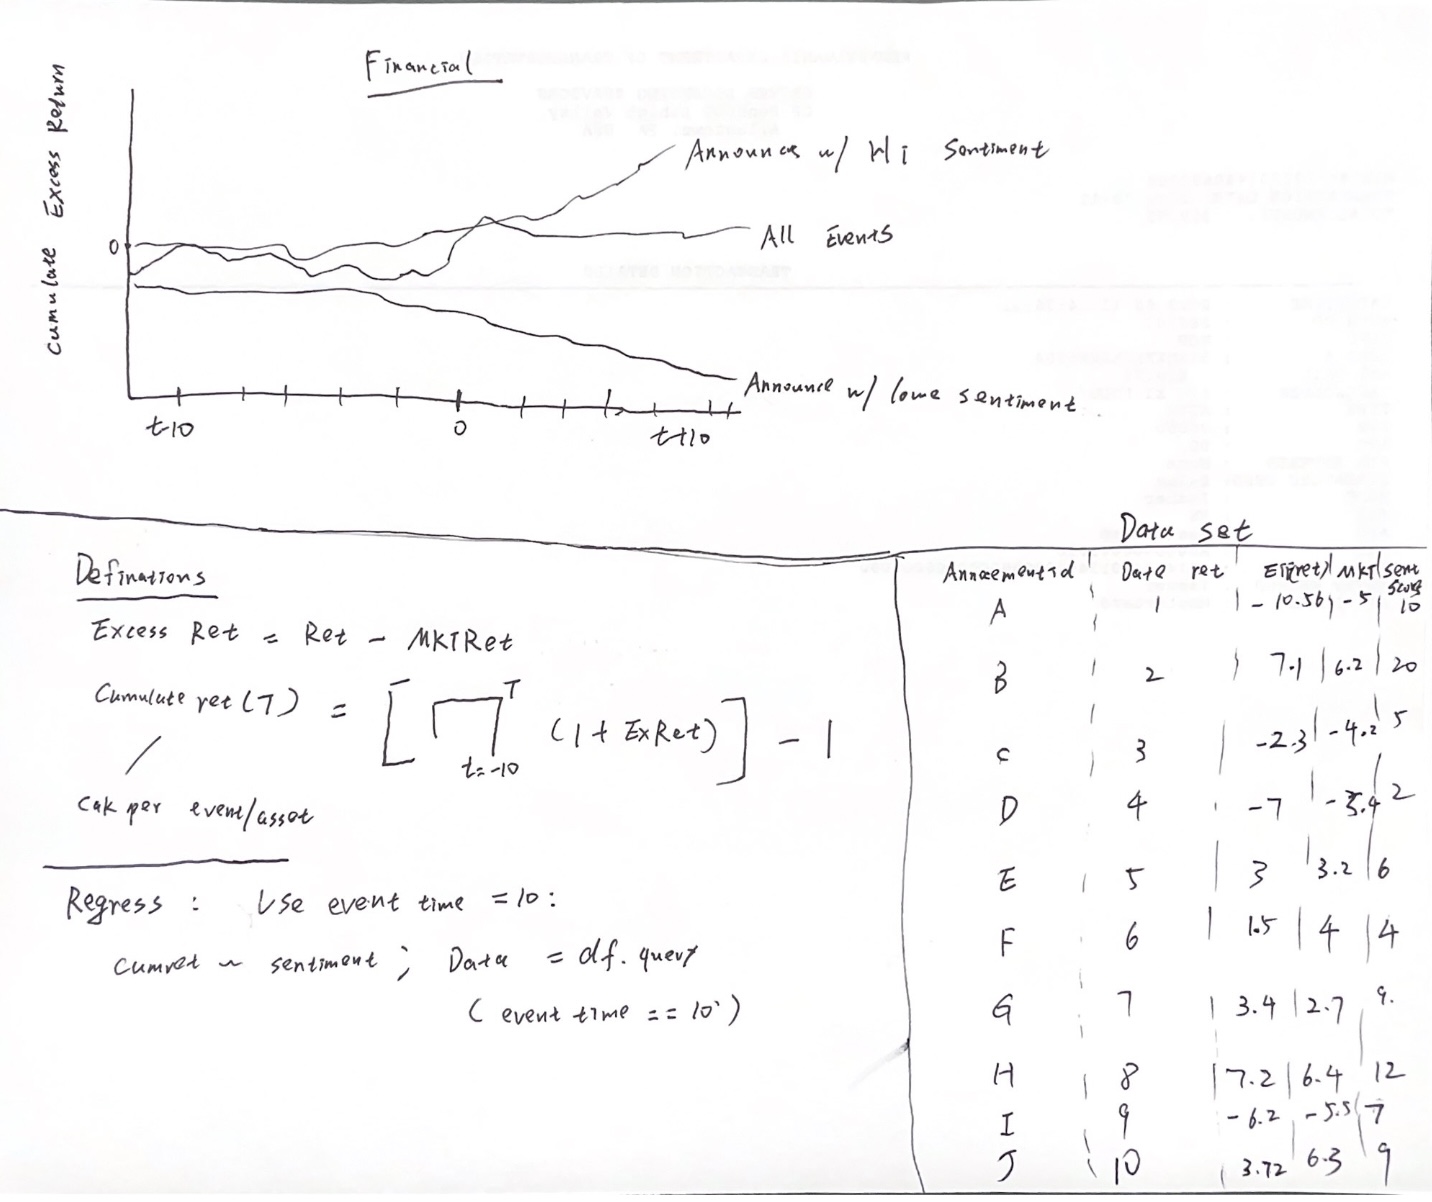 Financial
Cumulate Excess Return
Announces w/ Hi Sentiment
0
All Events
Announce w/ lowe sentiment.
t-10 0 t+10
Definations
Excess Ret = Ret - MKTRet
Cumulate ret (T) = [ ∏ T t=-10 (1 + ExRet) ] - 1
Calc per event/asset
Regress : Use event time = 10 :
Cumret ~ sentiment ; Data = df. query
( event time == 10')
Data set
Date ret MKT sent score
A 1 -10.56 -5 10
B 2 7.1 6.2 20
C 3 -2.3 -4.2 5
D 4 -7 2
E 5 3 3.2 6
F 6 1.5 4 4
G 7 3.4 2.7 9.
H 8 7.2 6.4 12
I 9 -6.2 -5.5 7
J 10 3.72 6.3 9